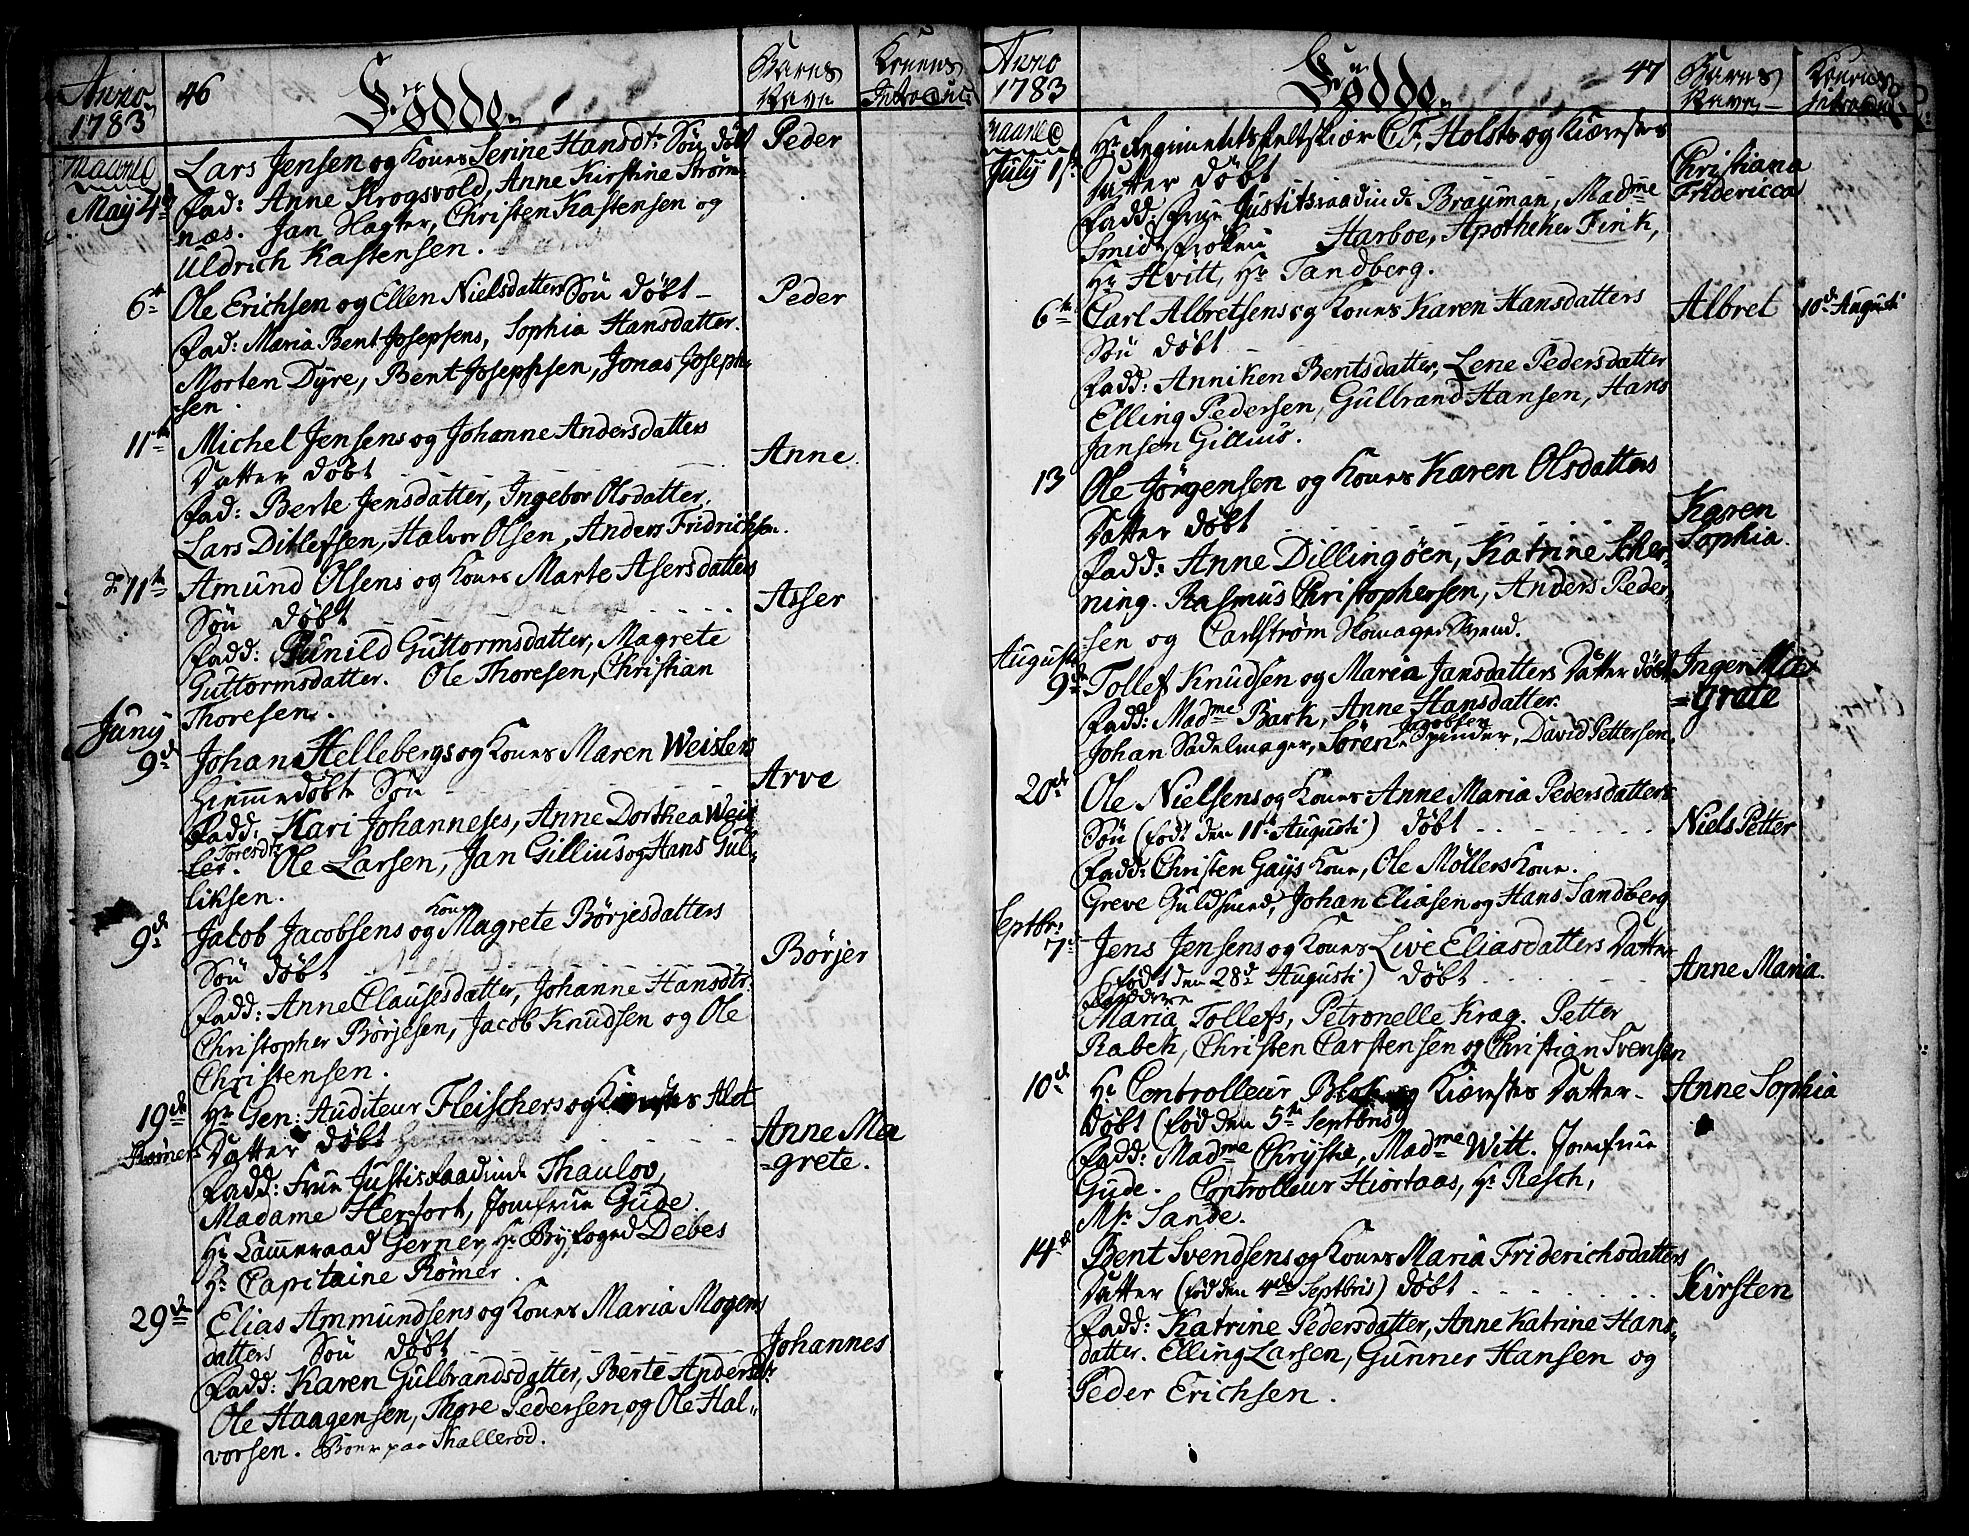 Anno 1783 46 Fødde Barns Navn Konens Introduc:
Maaned
May 4de Lars Jensen og Kones Serine Hansdtr Søn døbt Peder
Fad: Anne Krogsvold, Anne Kirstine Strøm
næs. Jan Hagter, Christen Kastensen og
Uldrich Kastensen.
6te Ole Erichsen og Ellen Nielsdatters Søn døbt Peder
Fad: Maria Bent Josephsens, Sophia Hansdatter.
Morten Dyre, Bent Josephsen, Jonas Joseph-
sen.
11te Michel Jensens og Johanne Andersdatters
Datter døbt Anne
Fad: Berte Jensdatter, Ingebor Olsdatter.
Lars Ditlefsen, Halvor Olsen, Anders Fridrichsen.
d 11te Amund Olsens og Kones Marte Asersdatters
Søn døbt Asser
Fadd: Gunild Guttormsdatter, Magrete
Guttormsdatter. Ole Thoresen, Christian
Thoresen.
Juny
9de Johan Hellebergs og Kones Maren Weislers
Hiemmedøbte Søn Arve
Fadd: Kari Johanneses, Anne Dorthea Weis
ler. Toresdtr Ole Larsen, Jan Gillius og Hans Gul-
liksen.
9de Jacob Jacobsens og Kones Magrete Børjesdatters
Søn døbt Børjer
Fadd: Anne Clausesdatter, Johanne Hansdtr.
Christopher Børjesen, Jacob Knudsen og Ole
Christensen.
19de Hr Gen: Auditeur Fleischers og Kierestes Alet
Rømer Datter døbt Anne Ma
=grete.
Fadd: Frue Justisraadinde Thaulov,
Madame Herfort, Jomfrue Gude.
Hr Cammeraad Gerner, Hr Byfoged Debes
Hr Capitaine Rømer.
29de Elias Ammundsens og Kones Maria Mogens
datters Søn døbt Johannes
Fadd: Karen Gulbrandsdatter, Berte Andersdtr
Ole Haagensen, Thore Pedersen, og Ole Hal-
vorsen. Boer paa Skallerød.
Anno 1783 Fødde 47 Barns Navn Konens Introduc
Maaned
July 1ste Hr Regimentsfeltskiær C.F. Holsts og Kiærestes
Datter døbt Christiana Fridericca
Fadd: Frue Justitsraadinde Brauman, Madme
Smidt, Frøken Harboe, Apotheker Fink,
Hr Hvitt, Hr Tandberg.
6te Carl Albretsens og Kones Karen Hansdatters Albret 10de Augusti
Søn døbt
Fadd: Anniken Bentsdatter, Lene Pedersdatter
Elling Pedersen, Gulbrand Hansen, Hans
Jansen Gillius.
13 Ole Jørgensen og Kones Karen Olsdatters
Datter døbt Karen Sophia.
Fadd: Anne Dillingøen, Katrine Scher
ning. Rasmus Christophersen, Anders Peder
sen og Carlstrøm Skomager Svend.
Augusti
9de Tollef Knudsen og Maria Jansdatters Datter døbt Inger Ma
=grete
Fadd: Madme Bark, Anne Hansdatter.
Johan Sadelmager, Søren Jacobsen Spinder, David Pettersen.
20de Ole Nielsens og Kones Anne Maria Pedersdatters
Søn (fød den 11te Augusti) døbt Niels Petter
Fadd: Christen Gays Kone, Ole Møllers Kone.
Greve Guldsmed, Johan Eliasen og Hans Sandberg
Septbr:
7de Jens Jensens og Kones Live Eliasdatters Datter
(fød den 28de Augusti) døbt Anne Maria.
Faddere
Maria Tollefs, Petronelle Krag. Petter
Rabek, Christen Carstensen og Christian Svensen
10de Hr Controlleur Blok og Kiærestes Datter Anne Sophia
Døbt (fød den 5te Septbris)
Fadd: Madme Chrystie, Madme Witt. Jomfrue
Gude. Controlleur Hiortaas, Hr Resch,
Mr. Sande.
14de Bent Svendsens og Kones Maria Friderichsdatters
Datter (fød den 4de Septbris) døbt Kirsten
Fadd: Katrine Pedersdatter, Anne Katrine Hans-
datter. Elling Larsen, Gunner Hansen og
Peder Erichsen.